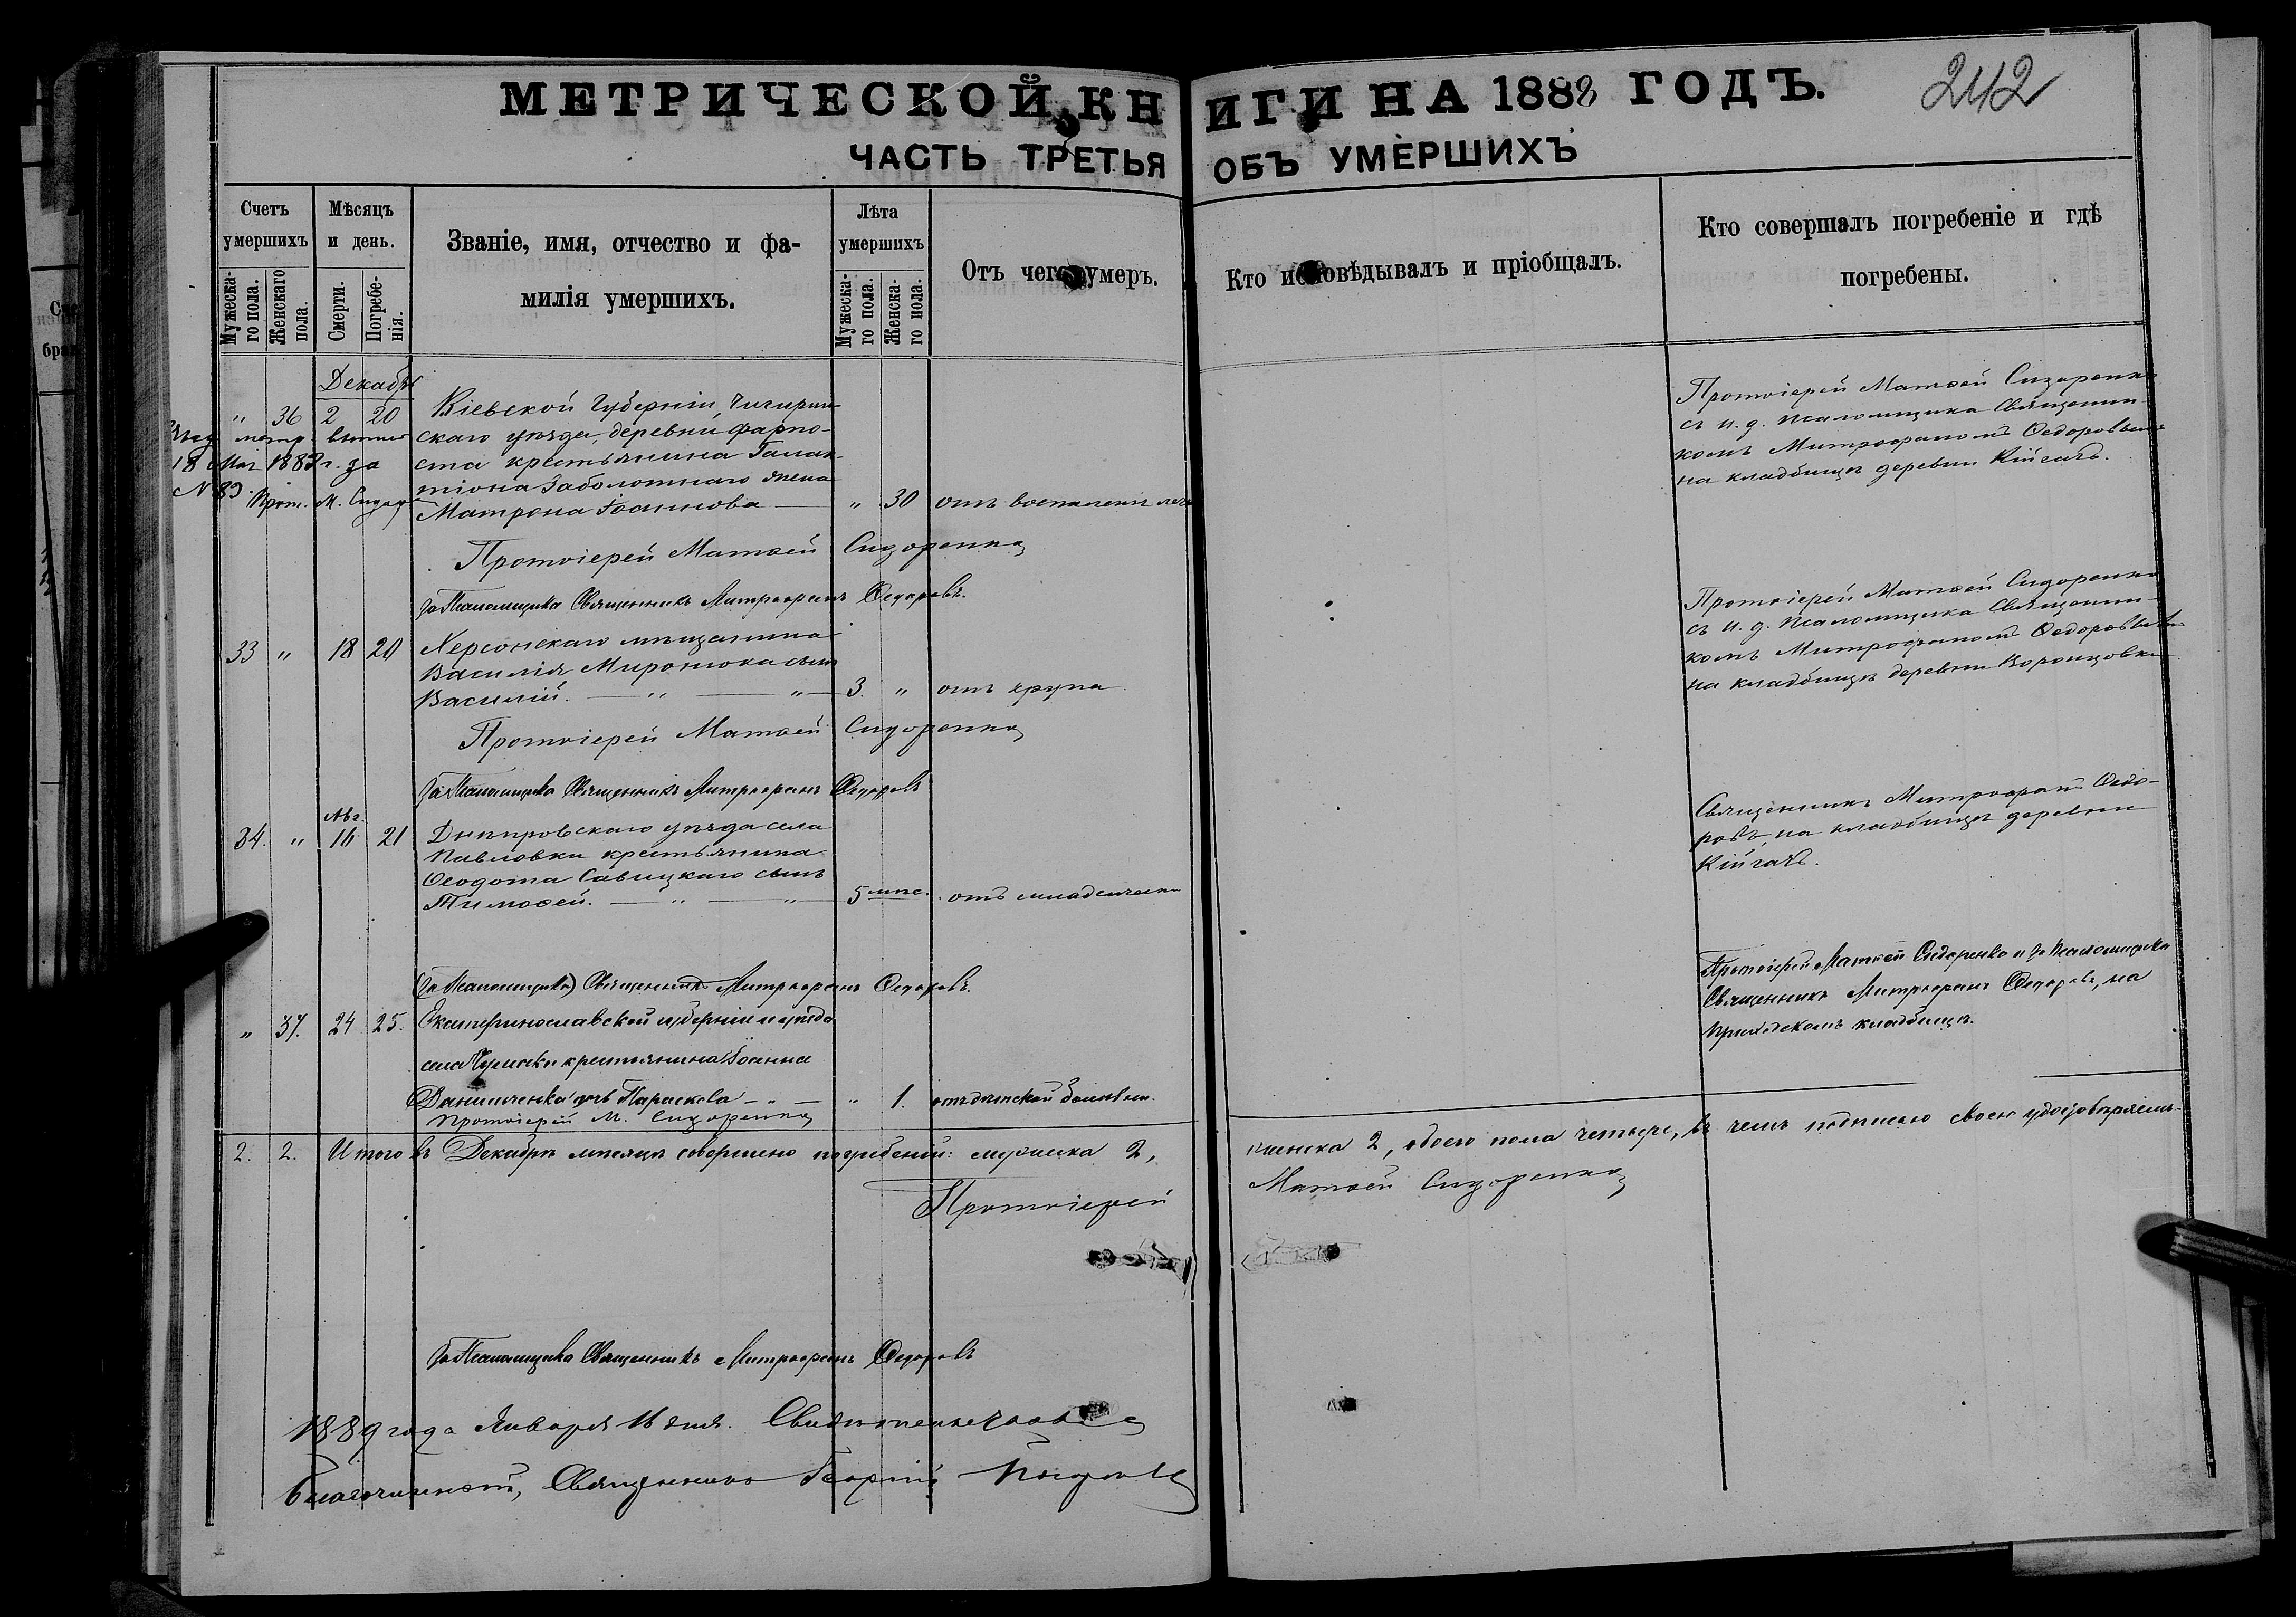 МЕТРИЧЕСКОЙ КНИГИ НА 1888 ГОДЪ.
242
ЧАСТЬ ТРЕТЬЯ ОБЪ УМЕРШИХЪ
Счетъ умершихъ
Мужеска-го пола.
Женскаго пола.
Мѣсяцъ и день.
Смерти.
Погребе-нія.
Званіе, имя, отчество и фа-
милія умершихъ.
Лѣта умершихъ
Мужеска-го пола.
Женска-го пола.
Отъ чего умеръ.
Кто исповѣдывалъ и пріобщалъ.
Кто совершалъ погребеніе и гдѣ
погребены.
Декабрь
" 36 2 20
Кіевской Губерніи, Чигирин-
скаго уѣзда, деревни Фарпо-
ста крестьянина Галак-
тіона Заболотнаго жена
Матрона Іоаннова — " 30 отъ воспаленія
метр. выпис
18 Мая 188 г. за
№ 89 Прот. М. Сидор
Протоіерей Матѳей Сидоренко
съ и. д. псаломщика Священни-
комъ Митрофаномъ Ѳедоровымъ
на кладбищѣ деревни Кійгачъ.
Протоіерей Матѳей Сидоренко
За Псаломщика Священникъ Митрофанъ Ѳедоровъ.
33 " 18 20
Херсонскаго мѣщанина
Василія Миронюка сынъ
Василій. — " — " — 3. " отъ крупа.
Протоіерей Матѳей Сидоренко
съ и. д. псаломщика Священни-
комъ Митрофаномъ Ѳедоровымъ
на кладбищѣ деревни Воронцовки
Протоіерей Матѳей Сидоренко
За Псаломщика Священникъ Митрофанъ Ѳедоровъ
Авг.
34. " 16 21
Днѣпровскаго уѣзда села
Павловки крестьянина
Ѳеодота Савицкаго сынъ
Тимоѳей. — " — " — 5 мѣс. отъ младенческ
Священникъ Митрофанъ Ѳедо-
ровъ, на кладбищѣ деревни
Кійгачъ.
(За Псаломщика) Священникъ Митрофанъ Ѳедоровъ.
" 37. 24 25.
Екатеринославской губерніи и уѣзда
села крестьянина Іоанна
Данильченка дочь Параскева — " — " 1. отъ дѣтской болѣзни.
Протоіерей М. Сидоренко
Протоіерей Матѳей Сидоренко и за Псаломщика
Священникъ Митрофанъ Ѳедоровъ, на
приходскомъ кладбищѣ.
2. 2. Итого въ Декабрѣ мѣсяцѣ совершено погребеній: мужеска 2, женска 2, обоего пола четыре, въ чемъ подписью своею удостовѣряемъ.
Протоіерей Матѳей Сидоренко
За Псаломщика Священникъ Митрофанъ Ѳедоровъ
1889 года Января 16 дня. Свидѣтельствовалъ
Благочинный, Священникъ Георгій